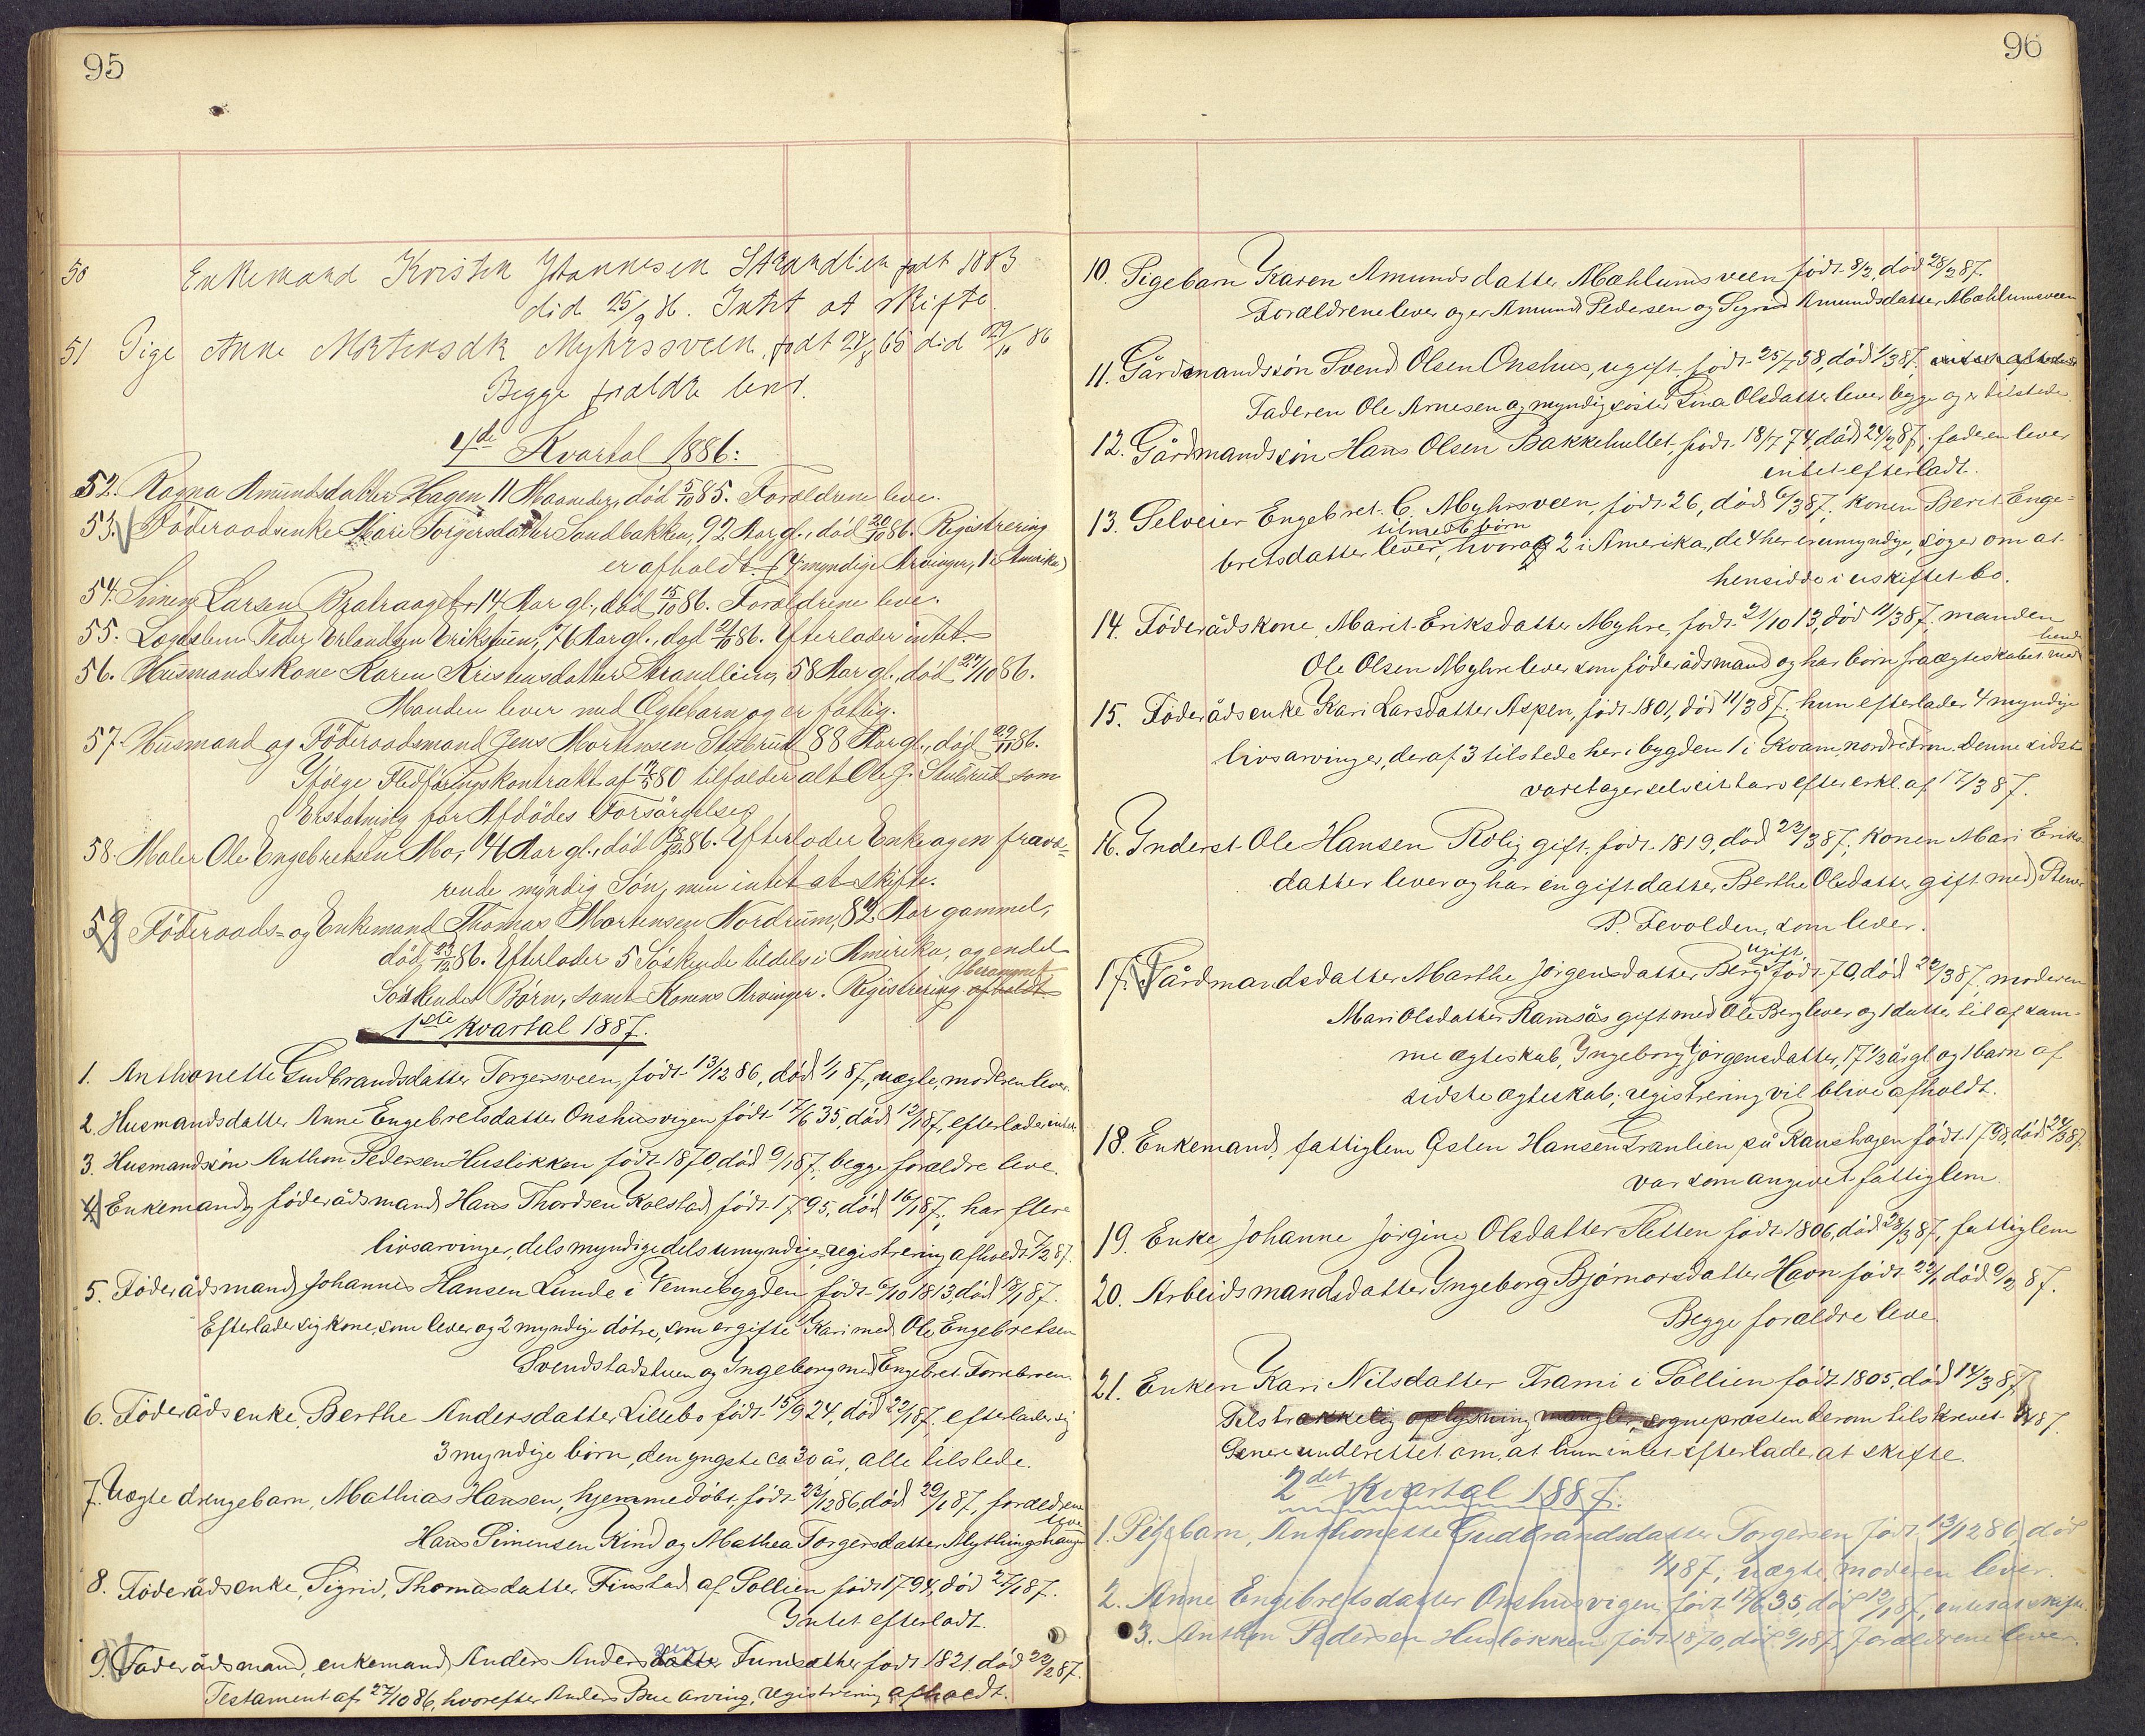 95
50 Enkemand Kristen Johannesen Strandlien født 1803
død 25/9 86. Intet at skifte
51 Pige Anne Mortensdtr Myhrssveen, født 28/8 65 død 29/10 86
Begge forældre lever.
4de Kvartal 1886:
52. Ragna Amundsdatter Hagen 11 Maaneder, død 5/10 85. Forældrene leve.
53. Föderaadsenke Mari Torgersdatter Sandbakken, 92 Aar gl., död 20/10 86. Registrering
er afholdt. (4 myndige Arvinger, 1 i Amerika)
54. Simen Larsen 14 Aar gl., död 15/10 86. Forældrene leve.
55. Lægdslem Peder Erlandsen 76 Aar gl., død 21/10 86. Efterlader intet.
56. Husmandskone Karen Kristensdatter Strandlien, 58 Aar gl., død 27/10 86.
Manden lever med Ægtebarn og er fattig.
57. Husmand og Föderaadsmand Jens Mortensen Stubrud 88 Aar gl., död 29/11 86.
Ifölge Fledföringskontrakt af 80 tilfalder alt Ole J. Stubrud som
Erstatning for Afdödes Forsörgelse.
58. Maler Ole Engebretsen Mo, Aar gl., död 86. Efterlader Enke og en fravæ=
rende myndig Sön, men intet at skifte.
59 Föderaads- og Enkemand Thomas Mortensen Nordrum, Aar gammel,
död 23/12 86. Efterlader 5 Söskende tildels i Amerika, og endel
berammet
Söskendes Börn, samt Konens Arvinger. Registrering afholdt
1ste kvartal 1887.
1. Anthonette Gudbrandsdatter Torgersveen, födt 13/12 86, död 1/1 87, uægte, moderen lever.
2. Husmandsdatter Anne Engebretsdatter Onshusvigen födt 17/6 35, död 12/1 87, efterlader intet
3. Husmandssön Anthon Pedersen Haslökken födt 1870, död 9/1 87, begge forældre leve.
4 Enkemand, föderådsmand Hans Thordsen Kolstad, födt 1795, död 16/1 87; har flere
livsarvinger, dels myndige dels umyndige, registrering afholdt 7/2 87.
5. Föderådsmand Johannes Hansen Lunde i Vennebygden födt 6/10 1813, död 18/1 87.
Efterlader sig kone, som lever og 2 myndige dötre, som er gifte Kari med Ole Engebretsen
Svendstadstuen og Ingeborg med Engebret
6. Föderåds enke, Berthe Andersdatter Lillebo födt 15/9 24, död 22/1 87, efterlader sig
3 myndige börn, den yngste ca 30 år, alle tilstede.
7. Uægte drengebarn, Mathias Hansen, hjemmedöbt, födt 23/12 86, död 29/1 87, forældrene
leve
Hans Simensen Kind og Mathea Torgersdatter
8. Föderåds enke, Sigrid, Thomasdatter Finstad af Sollien födt 1794, död 27/1 87.
Intet efterladt.
9. Föderådsmand, enkemand, Anders Andersdatter sen Furusæther født 1821. død 22/2 87.
Testament af 27/10 86, hvorefter Anders Bue arving, registrering afholdt.
96
10. Pigebarn Karen Amundsdatter Mæhlumsveen født 8/2, död 28/2 87.
Forældrene lever og er Amund Pedersen og Sigrid Amundsdatter Mæhlumsveen
11. Gårdmandssön Svend Olsen Onshus, ugift, födt 25/7 58, död 1/3 87.
Faderen Ole Arnesen og myndig söster Lina Olsdatter lever begge og er tilstede.
12. Gårdmandssön Hans Olsen Bakkehullet, födt 18/7 74, död 24/2 87; faderen lever
intet efterladt.
13. Selveier Engebret C. Myhrsveen, födt 26, död 6/3 87; konen Berit Enge=
tilmed 6 börn
bretsdatter lever, hvoraf 2 i Amerika, de 4 her er umyndige, söger om at
hensidde i uskiftet bo.
14. Föderådskone, Marit Eriksdatter Myhre, födt 21/10 13, död 11/3 87, manden
hende
Ole Olsen Myhre lever som föderådsmand og har börn fra ægteskabet med
15. Föderåds enke Kari Larsdatter Aspen, födt 1801, död 11/3 87. hun efterlader 4 myndige
livsarvinger, deraf 3 tilstede her i bygden 1 i Kvam, nordre Fron. denne sidste
varetager selv sit tarv efter erkl. af 17/3 87.
16. Inderst Ole Hansen Rolig gift, födt 1819, död 22/3 87; konen Mari Eriks-
datter lever og har en gift datter Berthe Olsdatter gift med
P. Fevolden, som lever.
ugift,
17. Gårdmandsdatter Marthe Jörgensdatter Berg födt 70, död 22/3 87, moderen
Mari Olsdatter Ramsås gift med Ole Berg lever og 1 datter til af sam-
me ægteskab, Ingeborg Jörgensdatter, 17 1/2 år gl. og 1 barn af
sidste ægteskab; registrering vil blive afholdt.
18. Enkemand, fattiglem Østen Hansen Tranlien på født 1798, död 24/3 87.
var som angivet fattiglem
19. Enke Johanne Jörgine Olsdatter Sletten födt 1806, död 28/3 87, fattiglem
20. Arbeidsmandsdatter Ingeborg Björnorsdatter Havn födt 22/1, död 9/2 87.
Begge forældre leve.
21. Enken Kari Nilsdatter Trami i Sollien födt 1805, död 14/3 87
Tilstrækkelig oplysning mangler, sognepræsten derom tilskrevet 87.
Senere underrettet om, at hun intet efterlader at skifte.
2det kvartal 1887.
1. Pigebarn, Anthonette Gudbrandsdatter Torgersen födt 13/12 86, död
1/1 87, uægte, moderen lever.
2. Anne Engebretsdatter Onshusvigen, födt 17/6 35, död 12/1 87, intet at skifte.
3. Anthon Pedersen Huslökken födt 1870, död 9/1 87. forældrene lever.